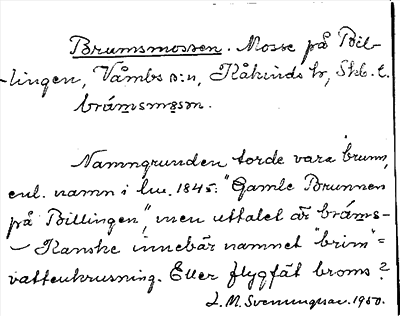 Brumsmossen. Mosse på Bil-
lingen, Våmbs s:n, Kåkinds hr, Skb. l.
brám̥sm̥ɷsɷn.
Namngrunden torde vara "brunn,
enl. namn i lm. 1845: "Gamle Brunnen
på Billingen", men uttalet är brám̥s-
– Kanske innebär namnet "brim" =
vattenkrusning. Eller flygfät broms?
L. M. Svenungsson. 1950.